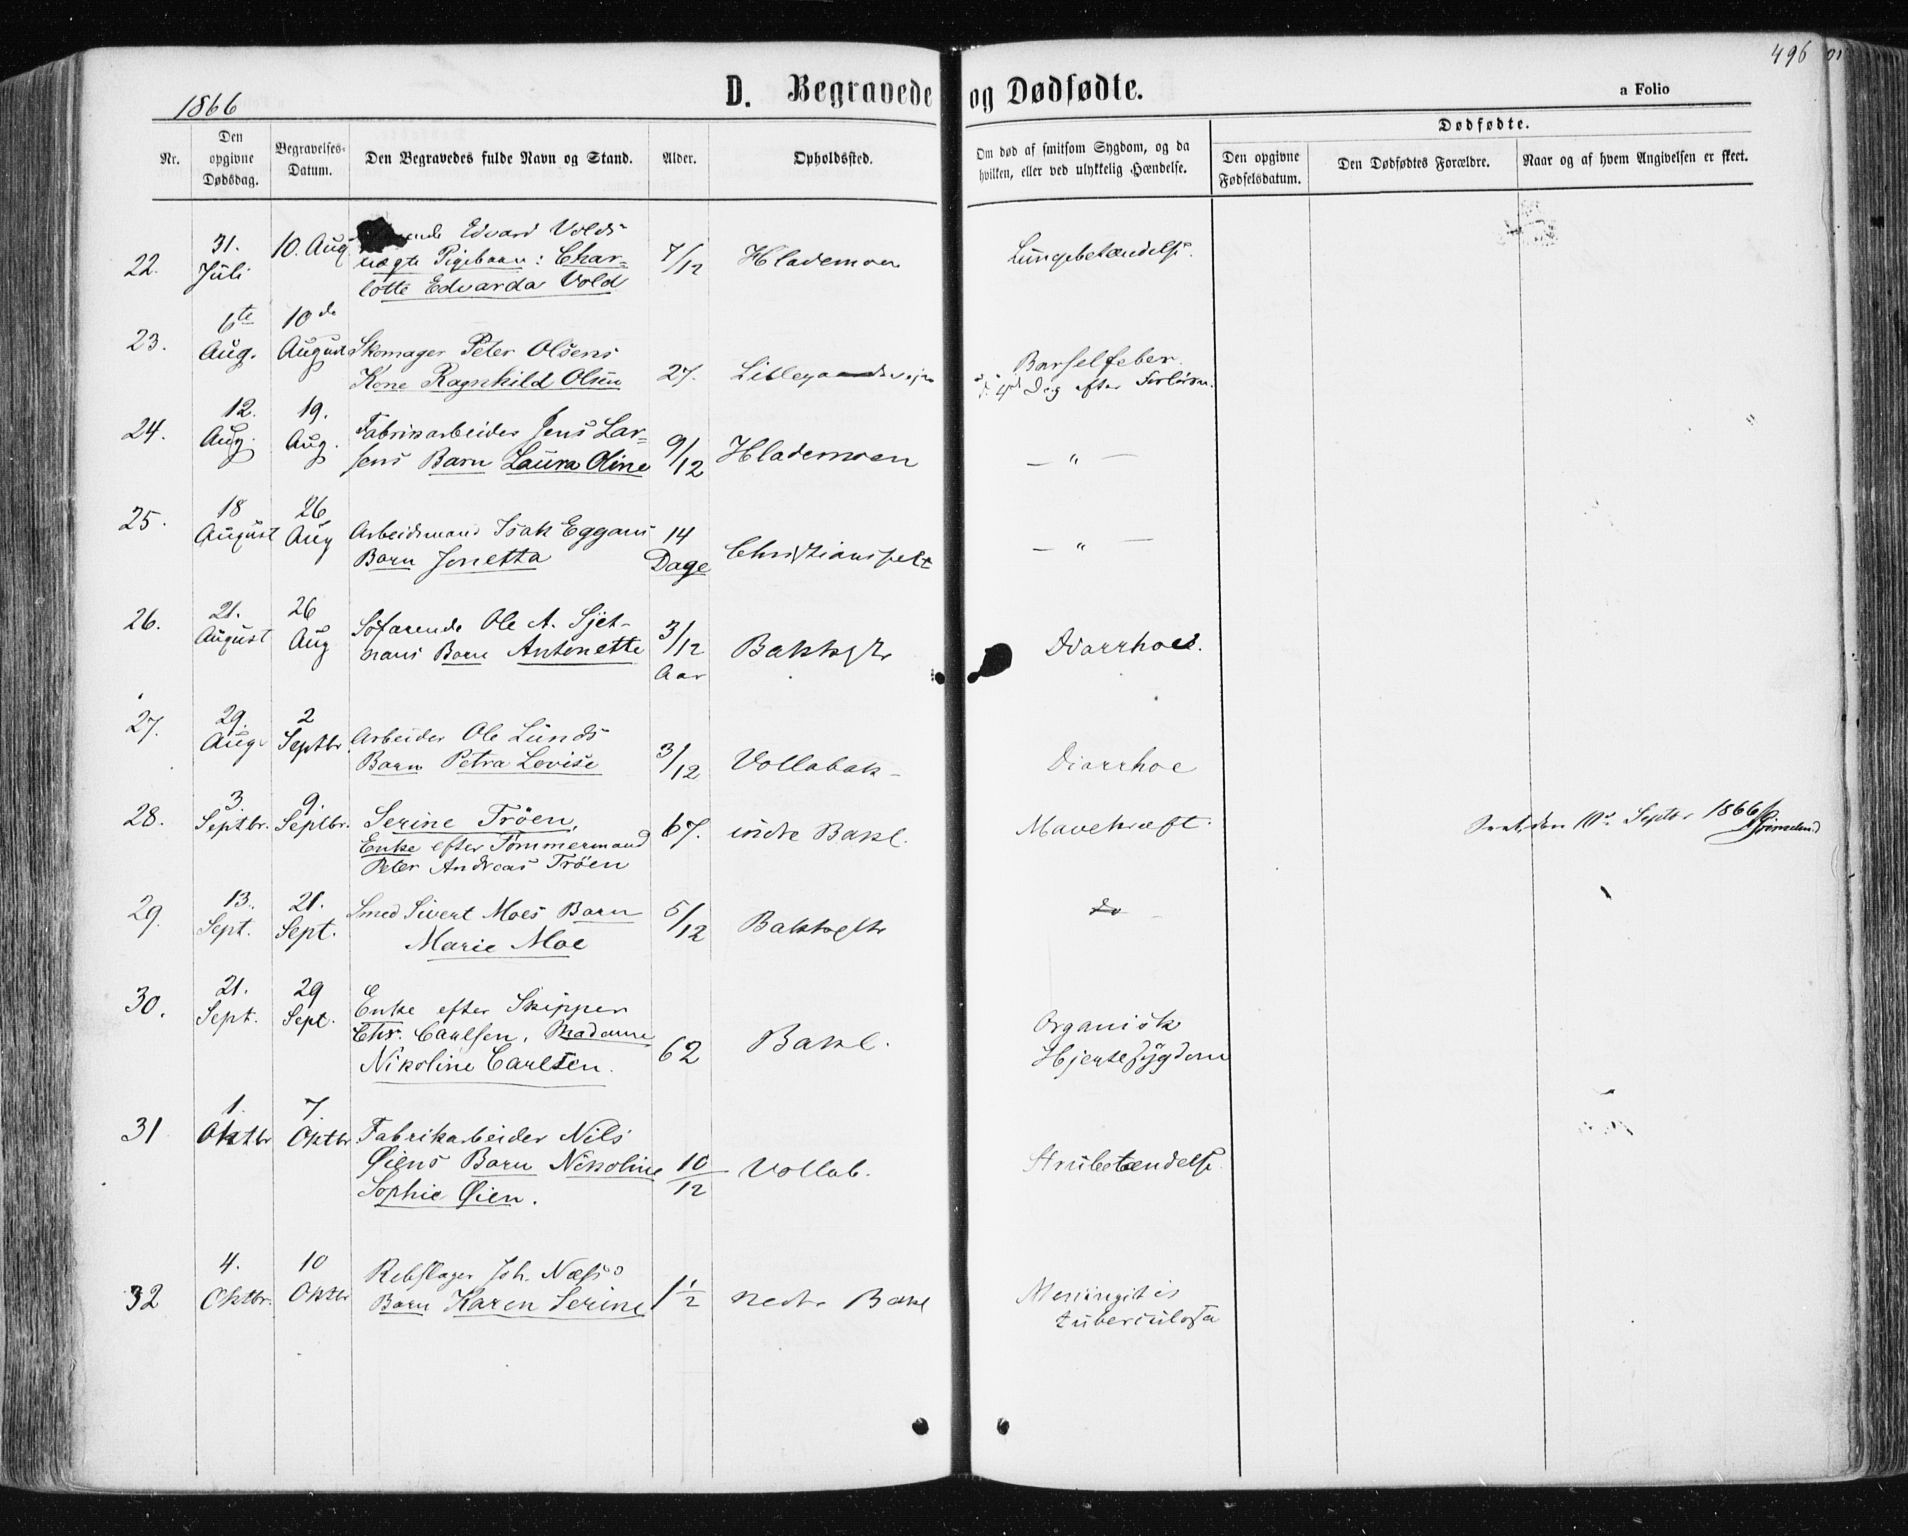 496
1866
D. Begravede og Dødfødte.
a Folio
Nr.
Den opgivne Dødsdag.
Begravelses-Datum.
Den Begravedes fulde Navn og Stand.
Alder.
Opholdssted.
Om død af smitsom Sygdom, og da hvilken, eller ved ulykkelig Hændelse.
Dødfødte.
Den opgivne Fødselsdatum.
Den Dødfødtes Forældre.
Naar og af hvem Angivelsen er skeet.
22. 31. Juli 10. Aug. Edvard Volds
uægte Pigebarn: Char-
lotte Edvarda Vold 7/12 Hlademoen Lungebetændelse.
23. 6te Aug. 10de August Skomager Peter Olsens
Kone Ragnhild Olsen 27. Barselfeber.
Dag efter
24. 12. Aug. 19. Aug. Fabrikarbeider Jens Lar-
sens Barn Laura Oline 9/12 Hlademoen — " —
25. 18 August 26 Aug Arbeidsmand Isak Eggans
Barn Jonetta 14 Dage Christiansfelt — " —
26. 21. August 26 Aug Søfarende Ole A. Sjet-
nans Barn Antonette 3/12 Aar Bakkegt Diarrhoe.
27. 29. Aug. 2 Septbr. Arbeider Ole Lunds
Barn Petra Lovise 3/12 Vollabak- Diarrhoe
28. 3. Septbr. 9. Septbr. Serine Trøen,
Enke efter Tømmermand
Peter Andreas Trøen 67. indre Bakl. Mavekræft. den 10de Septbr 1866
29. 13. Sept. 21. Sept. Smed Sivert Moes Barn
Marie Moe 5/12 do
30. 21. Sept. 29 Sept. Enke efter Skipper
Chr. Carlsen, Madame
Nikoline Carlsen. 62 Bakl. Organisk
Hjertesygdom
31 1. Oktbr 7. Oktbr. Fabrikarbeider Nils
Øiens Barn Nikoline
Sophie Øien. 10/12 Vollab. Strubetændelse.
32 4. Oktbr. 10 Oktbr Rebslager Joh. Næss's
Barn Karen Serine 1 1/2 nedre Bakl Meningitis
tuberculosa